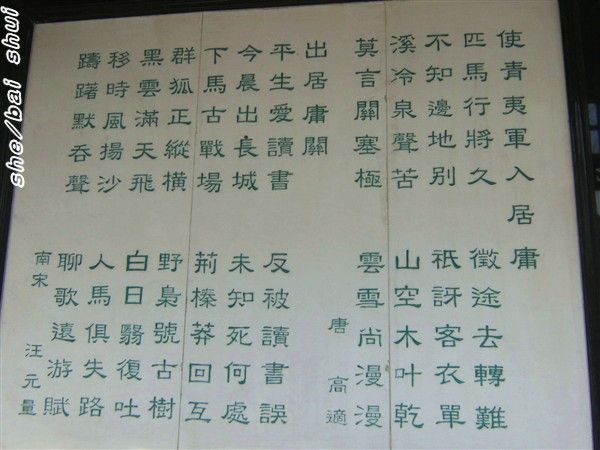 使青夷軍入居庸
匹馬行將久 徵途去轉難
不知邊地別 祇訝客衣單
溪冷泉聲苦 山空木叶乾
莫言關塞極 雲雪尚漫漫
唐 高適
出居庸關
平生愛讀書 反被讀書誤
今晨出長城 未知死何處
下馬古戰場 荊榛莽回互
群狐正縱橫 野梟號古樹
黑雲滿天飛 白日翳復吐
移時風揚沙 人馬俱失路
躊躇默吞聲 聊歌遠游賦
南宋 汪元量
she/bai shui